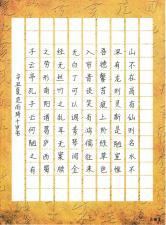 山不在高有仙则名水不
深有龙则灵斯是陋室惟
吾德馨苔痕上阶绿草色
入帘青谈笑有鸿儒往来
无白丁可以调素琴阅金
经无丝竹之乱耳无案牍
之劳形南阳诸葛庐西蜀
子云亭孔子云何陋之有
辛丑夏范雨琦十岁书